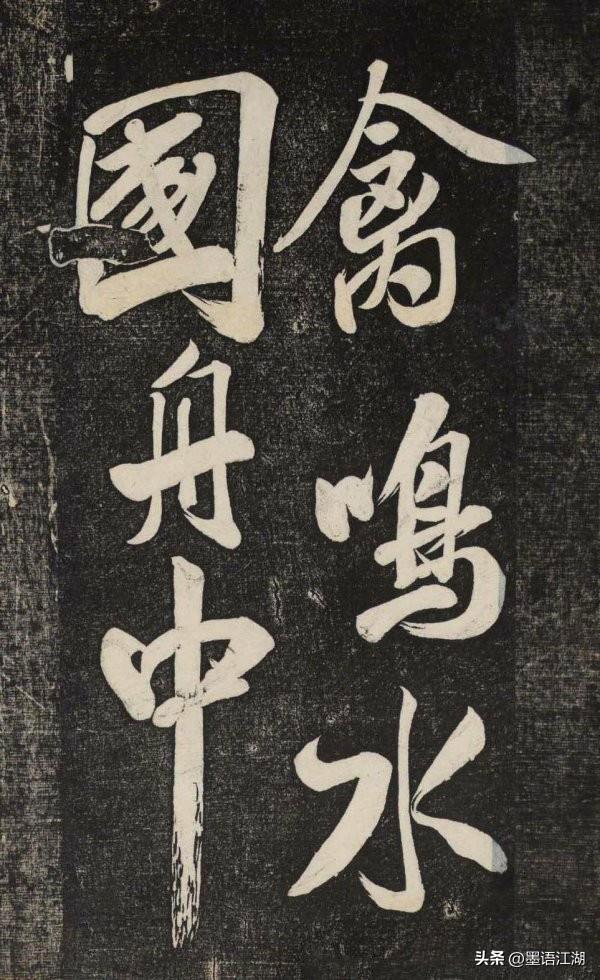 禽鳴水
國舟中
头条 @墨语江湖